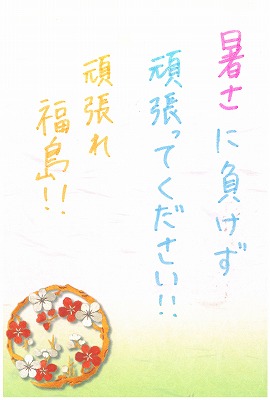 暑さに負けず
頑張ってください!!
頑張れ
福島!!